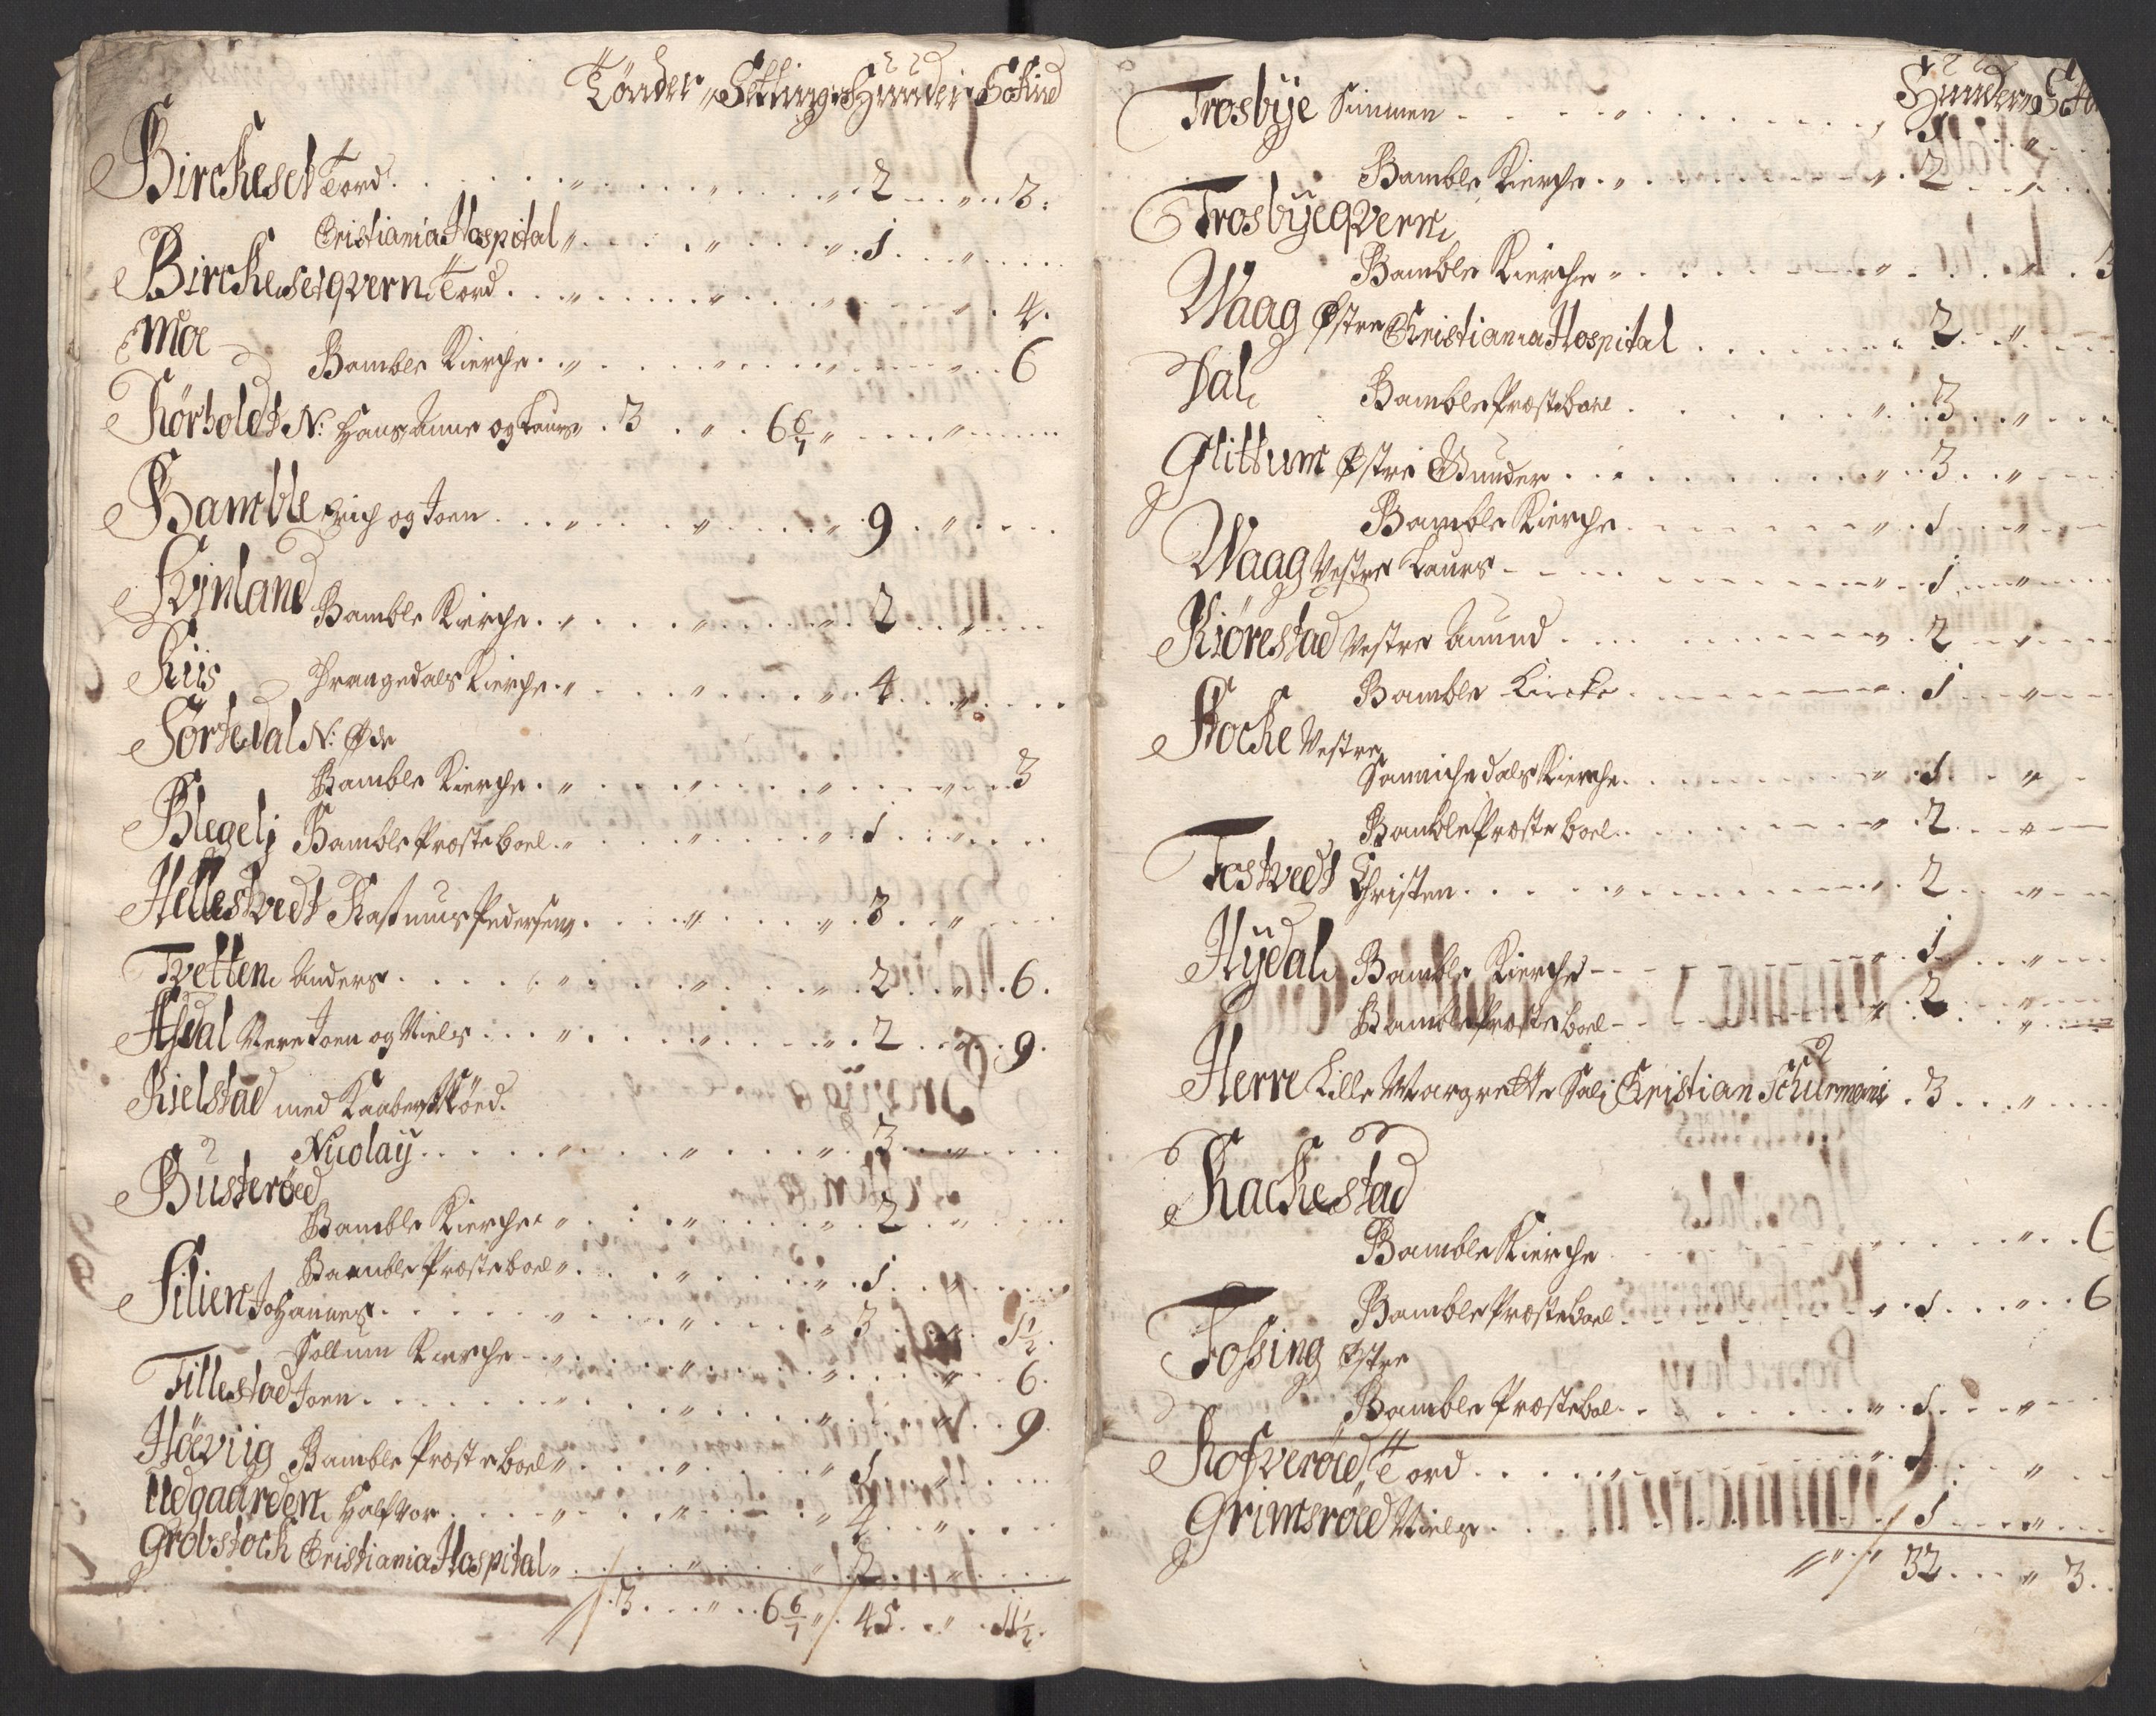 Tönder „ Setting „ Huuder „ Schind
Birckeset Tord . . . „ . . . „ . . 2 . . „ . . 3.
Cristiania Hospital „ . . . „ . . . „ . 1 . . „ . . .
Birckesetqvern Tord . . „ . . . „ . . . „ . . . „ . 4.
Moe Bamble Kierche . „ . . . „ . . . „ . . . „ . 6
Kørholdt N: Hans, Anne og Laurs . 3 . „ . 6 6/7 „ . . . „ . . .
Bamble Erich og Joen . . . „ . . . „ . . . „ . 9 . „ . . .
Hvinland Bamble Kirche . „ . . . „ . . . „ . 2 . . „ . . .
Riis Drangedals Kierche . „ . . . „ . . . „ . 4 . . „ . . .
Sørtedal N: Øde
Bamble Kierche . „ . . . „ . . . „ . . . „ . 3
Blegeli Bamble Præsteboel . „ . . . „ . . . „ . 1 . . „ . . .
Hellestvedt Rasmus Pedersen . . . „ . . . „ . 3 . . „ . . .
Tvetten Anders . . . „ . . . „ . . . „ . 2 . . „ . 6.
Asdal Nere Joen og Niels . . . „ . . . „ . . . „ . 2 . . „ . 9.
Kielstad med Raaberskøed.
Nicolay . . . „ . . . „ . . . „ . 3 . . „ . . .
Busterøed
Bamble Kierche „ . . . „ . . . „ . 2 . . „ . . .
Bamble Præsteboel „ . . . „ . . . „ . 1 . . „ . . .
Silien Johannes . . . „ . . . „ . . . „ 3 . . „ . 1 1/2.
Sollum Kierche . . „ . . . „ . . . „ . . . „ . 6.
Tillestad Joen . . . „ . . . „ . . . „ . . . „ . 9
Höeviig Bamble Præsteboel „ . . . „ . . . „ . 1 . . „ . . .
Udgaarden Halfvor . . . „ . . . „ . . . „ 4 . . „ . . .
Grobstock Cristiania Hospital „ . . . „ . . . „ 2 . . „ . . .
3 . . „ . . 6 6/7 „ . 45 . „ . 11 1/2.
Hunder „ Sch
Trosbye Simmen . . . „ . . . 1 . . „ . .
Bamble Kierche . „ . . . „ . 2 . . .
Trosbyeqvern
Bamble Kierche „ . . . „ . . . „ . 3
Waag Østre Christiania Hospital . . . „ 2 . . „ . .
Dal Bamble Præsteboel . . . „ . 3 . . „ . .
Glittum Østre Gunder . . . „ . 3 . . „ . .
Bamble Kierche . . . „ . 1 . . „ . .
Waag Vestre Laurs . . . „ . 1 . . „ . .
Kiörestad Vestre Amund . . . „ . 2 . . „ . .
Bamble Kircke . . . „ . 1 . . „ . .
Stocke Vestre
Sannichedals Kierche . . . „ . 1 . . „ .
Bamble Præsteboel . . . „ . 2 . . „ . .
Tostvedt Christen . . . „ . . . „ . 2 . . „ . .
Hydal Bamble Kierche . . . „ . 1 . . „ . .
Bamble Præsteboel . . . „ . 2 . . „ . .
Herre Lille Margrette Sal: Cristian Schurmans . 3 . . „ . .
Rackestad
Bamble Kierche . . . „ . . . „ . . 6
Bamble Præsteboel . . . „ . 1 . . „ . . 6
Fossing Østre
Bamble Præsteboel . . . „ . 1 . . „ . .
Rosverøed Tord . . . „ . . . „ . 1 . . „ . .
Grimsrøed Niels . . . . . . 1 . . „ . .
„ „ 32 . . „ 3.